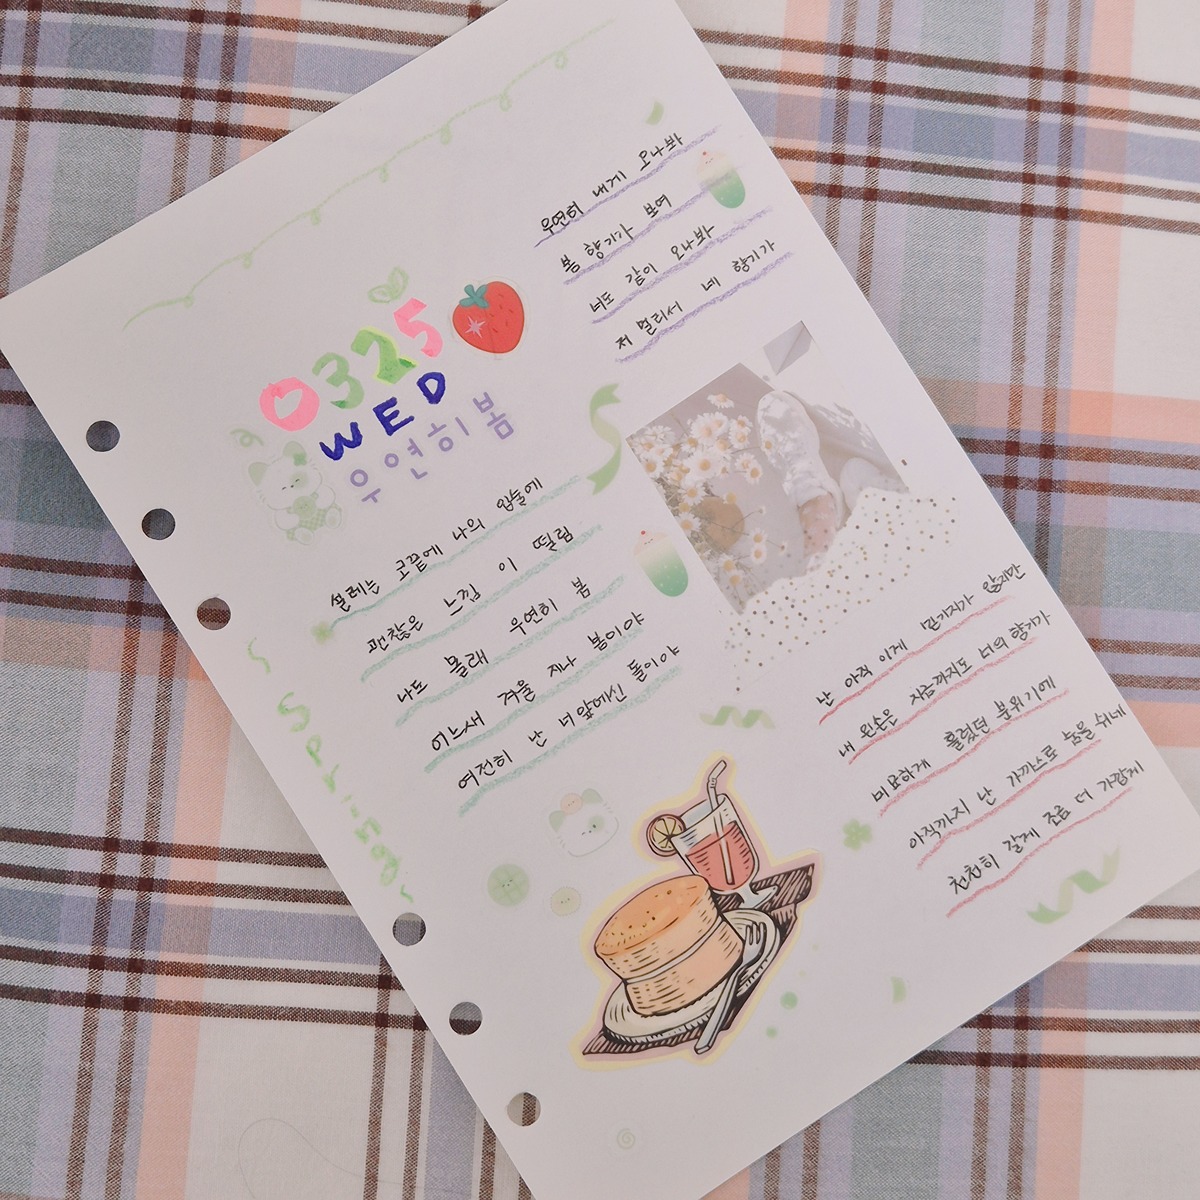 0325
WED
우연히 봄
설레는 코끝에 나의 입술에
괜찮은 느낌 이 떨림
나도 몰래 우연히 봄
어느새 겨울 지나 봄이야
여전히 난 너 앞에선 돌이야
~ Spring ~
우연히 내게 오나봐
봄 향기가 보여
너도 같이 오나봐
저 멀리서 네 향기가
난 아직 이게 믿기지가 않지만
내 왼손은 지금까지도 너의 향기가
미묘하게 흘렀던 분위기에
아직까지 난 가까스로 숨을 쉬네
천천히 갈게 조금 더 가깝게